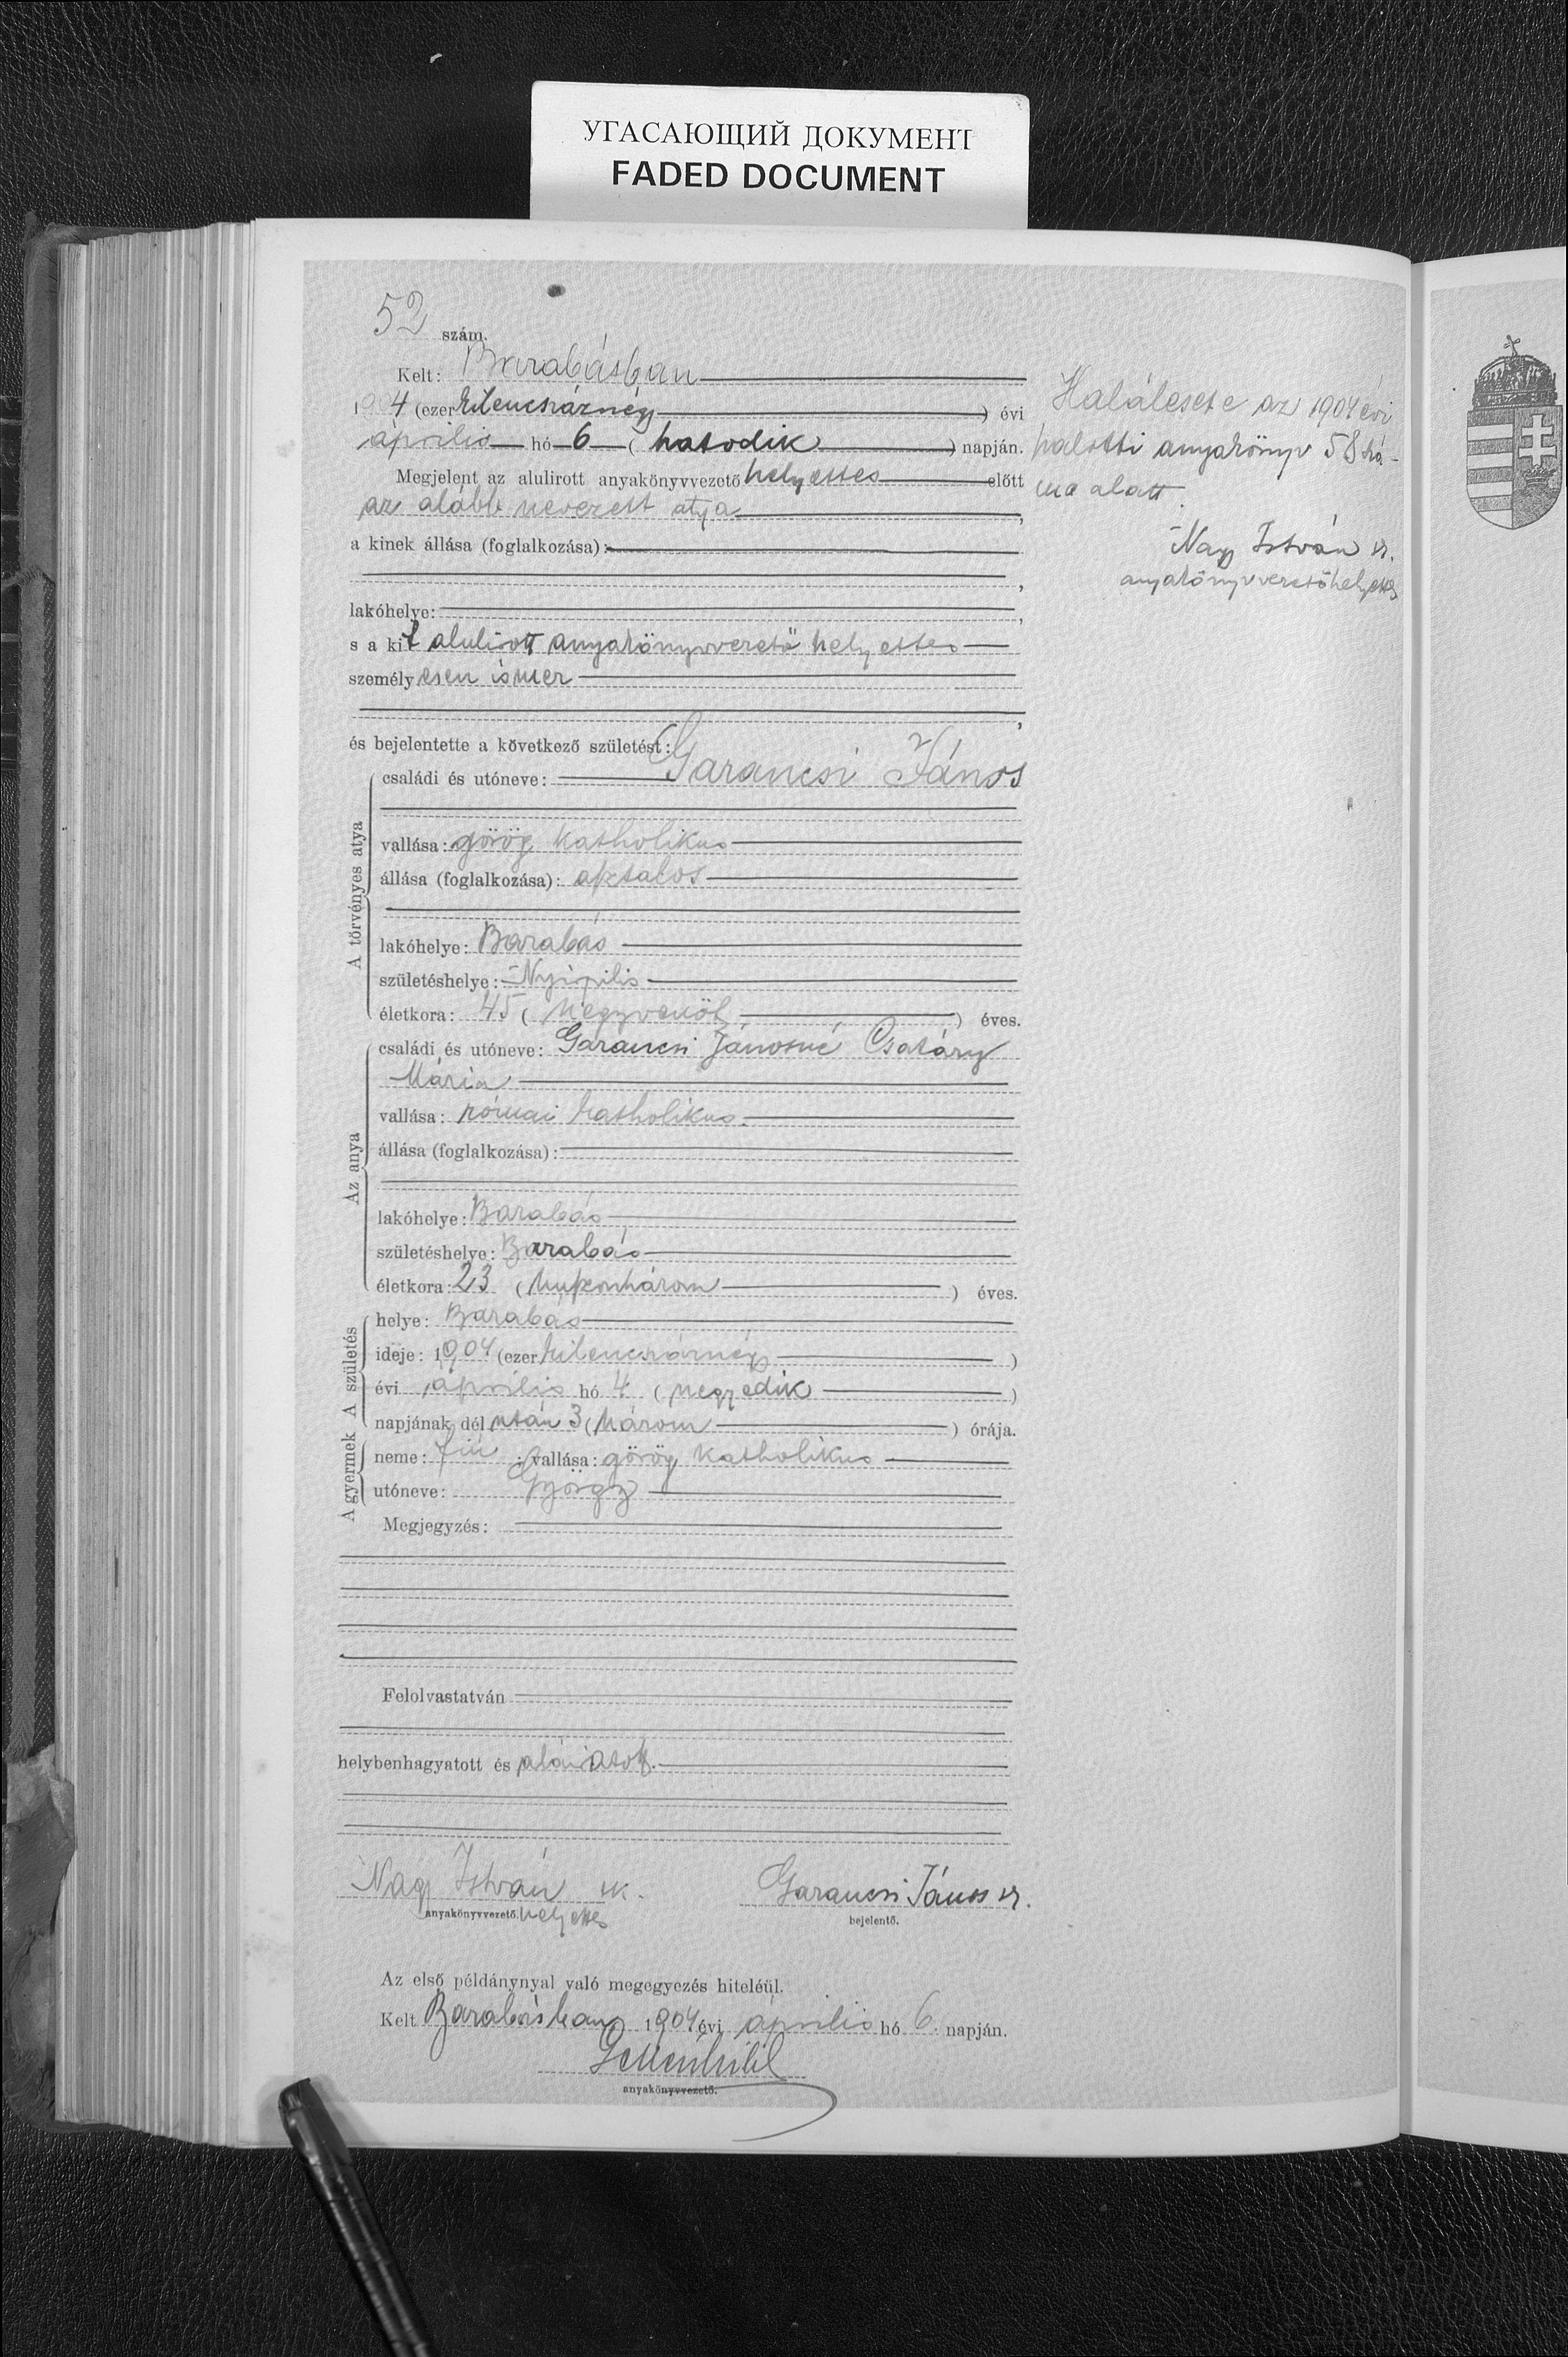 УГАСАЮЩИЙ ДОКУМЕНТ
FADED DOCUMENT
52 szám.
Kelt: Barabásban
1904 (ezer kilencszáznégy) évi
április hó 6 (hatodik) napján.
Megjelent az alulirott anyakönyvvezető helyettes előtt
az alább nevezett atya,
a kinek állása (foglalkozása):
,
lakóhelye: ,
s a kit alulirott anyakönyvvezető helyettes
személyesen ismer
,
és bejelentette a következő születést:
A törvényes atya
családi és utóneve: Garancsi János
vallása: görög katholikus
állása (foglalkozása): asztalos
lakóhelye: Barabás
születéshelye: Nyirpilis
életkora: 45 (negyvenöt) éves.
Az anya
családi és utóneve: Garancsi Jánosné Csatáry
Mária
vallása: római katholikus.
állása (foglalkozása):
lakóhelye: Barabás
születéshelye: Barabás
életkora: 23 (huszonhárom) éves.
A születés
helye: Barabás
ideje: 1904 (ezer kilencszáznégy)
évi április hó 4 (negyedik)
napjának dél után 3 (három) órája.
A gyermek
neme: fiú ; vallása: görög katholikus
utóneve: György
Megjegyzés:
Felolvastatván
helybenhagyatott és aláiratott.
Nagy István sk. Garancsi János sk.
anyakönyvvezető. helyettes bejelentő.
Az első példánynyal való megegyezés hiteléül.
Kelt Barabásban 1904 évi április hó 6. napján.
anyakönyvvezető.
Halálesete az 1904 évi
halotti anyakönyv 58 szá-
ma alatt.
Nagy István sk.
anyakönyvvezetőhelyettes